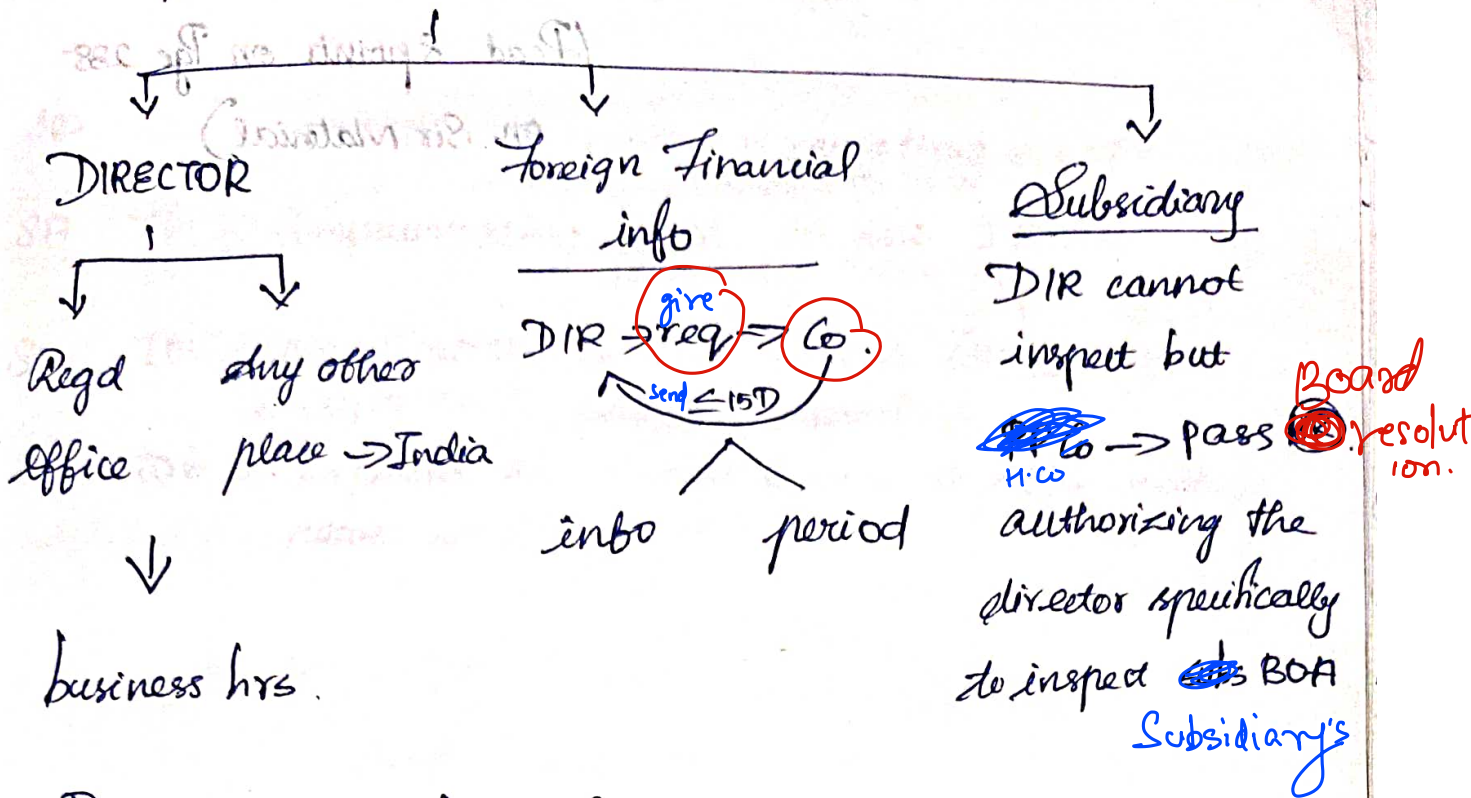 DIRECTOR
Regd
office
Any other
place → India
business hrs.
Foreign Financial
info
give
DIR → req ⇒ Co.
send ≤ 15D
info
period
Subsidiary
DIR cannot
inspect but
H.Co → pass Board
resolut
ion.
authorizing the
director specifically
to inspect BOA
Subsidiary's